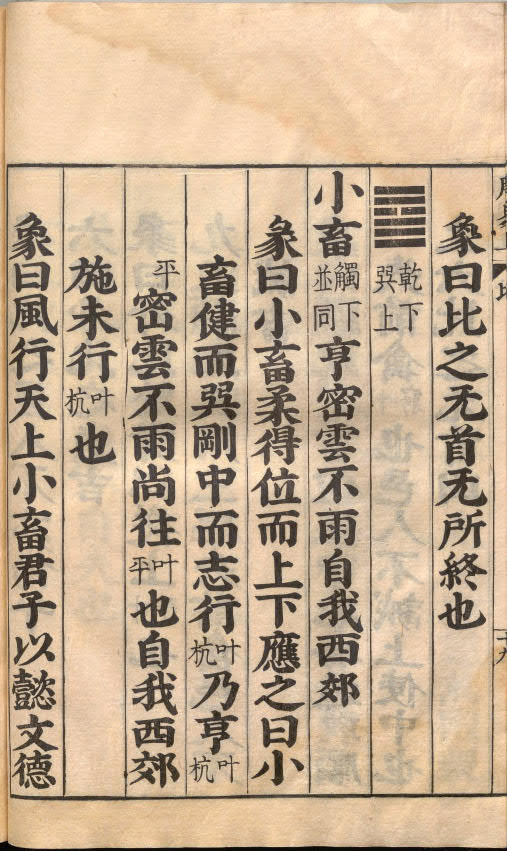 象曰比之无首无所終也
䷈乾下巽上
小畜下同觸並亨密雲不雨自我西郊
彖曰小畜柔得位而上下應之曰小
畜健而巽剛中而志行叶杭乃亨叶杭
平密雲不雨尚往叶平也自我西郊
施未行叶杭也
象曰風行天上小畜君子以懿文德